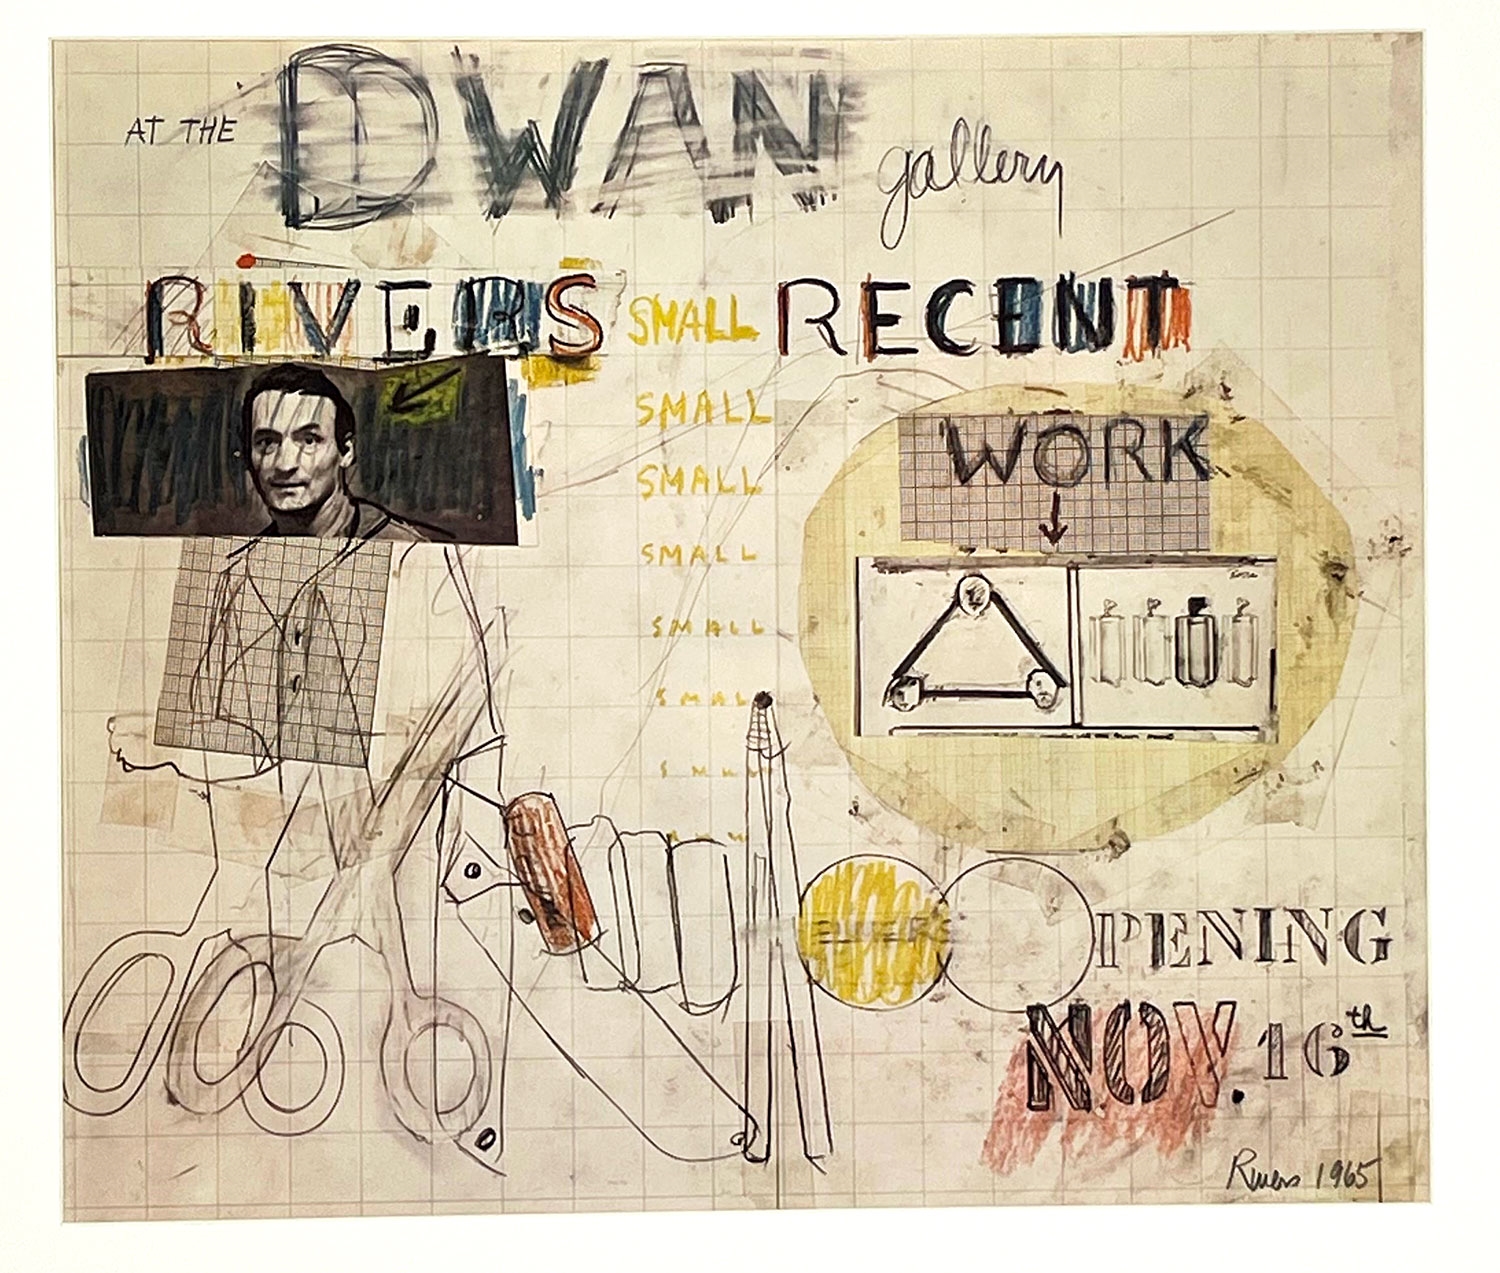 AT THE DWAN gallery
RIVERS SMALL RECENT
SMALL
SMALL
SMALL
SMALL
SMAL
WORK
OPENING
NOV. 16th
Rivers 1965